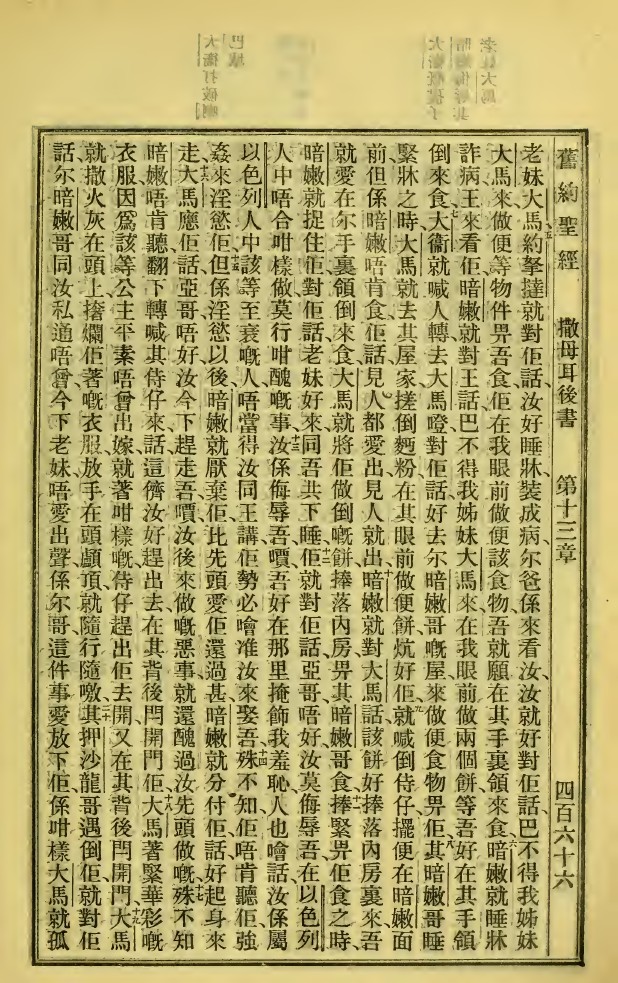 舊約聖經 撒母耳後書 第十三章 四百六十六
老妹大馬約拏撻就對佢話、汝好睡牀裝成病、尔爸係來看汝、汝就好對佢話、巴不得我姊妹
大馬來做便等物件畀吾食、佢在我眼前做便該食物、吾就願在其手裏領來食、六暗嫩就睡牀
詐病、王來看佢、暗嫩就對王話、巴不得我姊妹大馬來、在我眼前做兩個餅、等吾好在其手領
倒來食、七大衞就喊人轉去大馬噔對佢話、好去尔暗嫩哥嘅屋來做便食物畀佢、八其暗嫩哥睡
緊牀之時、大馬就去其屋家搓倒麪粉、在其眼前做便餅炕好佢、九就喊倒侍仔擺便在暗嫩面
前、但係暗嫩唔肯食、佢話見人都愛出、見人就出、十暗嫩就對大馬話、該餅好捧落內房裏來、吾
就愛在尔手裏領倒來食、大馬就將佢做倒嘅餅、捧落內房畀其暗嫩哥食、十一捧緊畀佢食之時、
暗嫩就捉住佢、對佢話、老妹好來同吾共下睡、十二佢就對佢話、亞哥唔好、汝莫侮辱吾、在以色列
人中唔合咁樣做、莫行咁醜嘅事、十三汝係侮辱吾嘪、吾好在那里掩飾我羞恥、人也噲話汝係屬
以色列人中該等至衰嘅人、唔當得汝同王講、佢勢必噲准汝來娶吾、十四殊不知佢唔肯聽、佢強
姦來淫慾佢、十五但係淫慾以後、暗嫩就厭棄佢、比先頭愛佢還過甚、暗嫩就分付佢話、好起身來
走、十六大馬應佢話、亞哥唔好、汝今下趕走吾嘪、汝後來做嘅惡事、就還醜過汝先頭做嘅、殊不知
暗嫩唔肯聽、十七翻下轉喊其侍仔來話、這儕汝好趕出去、在其背後閂開門佢、十八大馬著緊華彩嘅
衣服、因爲該等公主平素唔曾出嫁、就著咁樣嘅、侍仔趕出佢去開、又在其背後閂開門、十九大馬
就撒火灰在頭上、撦爛佢著嘅衣服、放手在頭顱頂、就隨行隨噭、二十其押沙龍哥遇倒佢就對佢
話、尔暗嫩哥同汝私通唔曾、今下老妹唔愛出聲、係尔哥、這件事愛放下佢、係咁樣大馬就孤